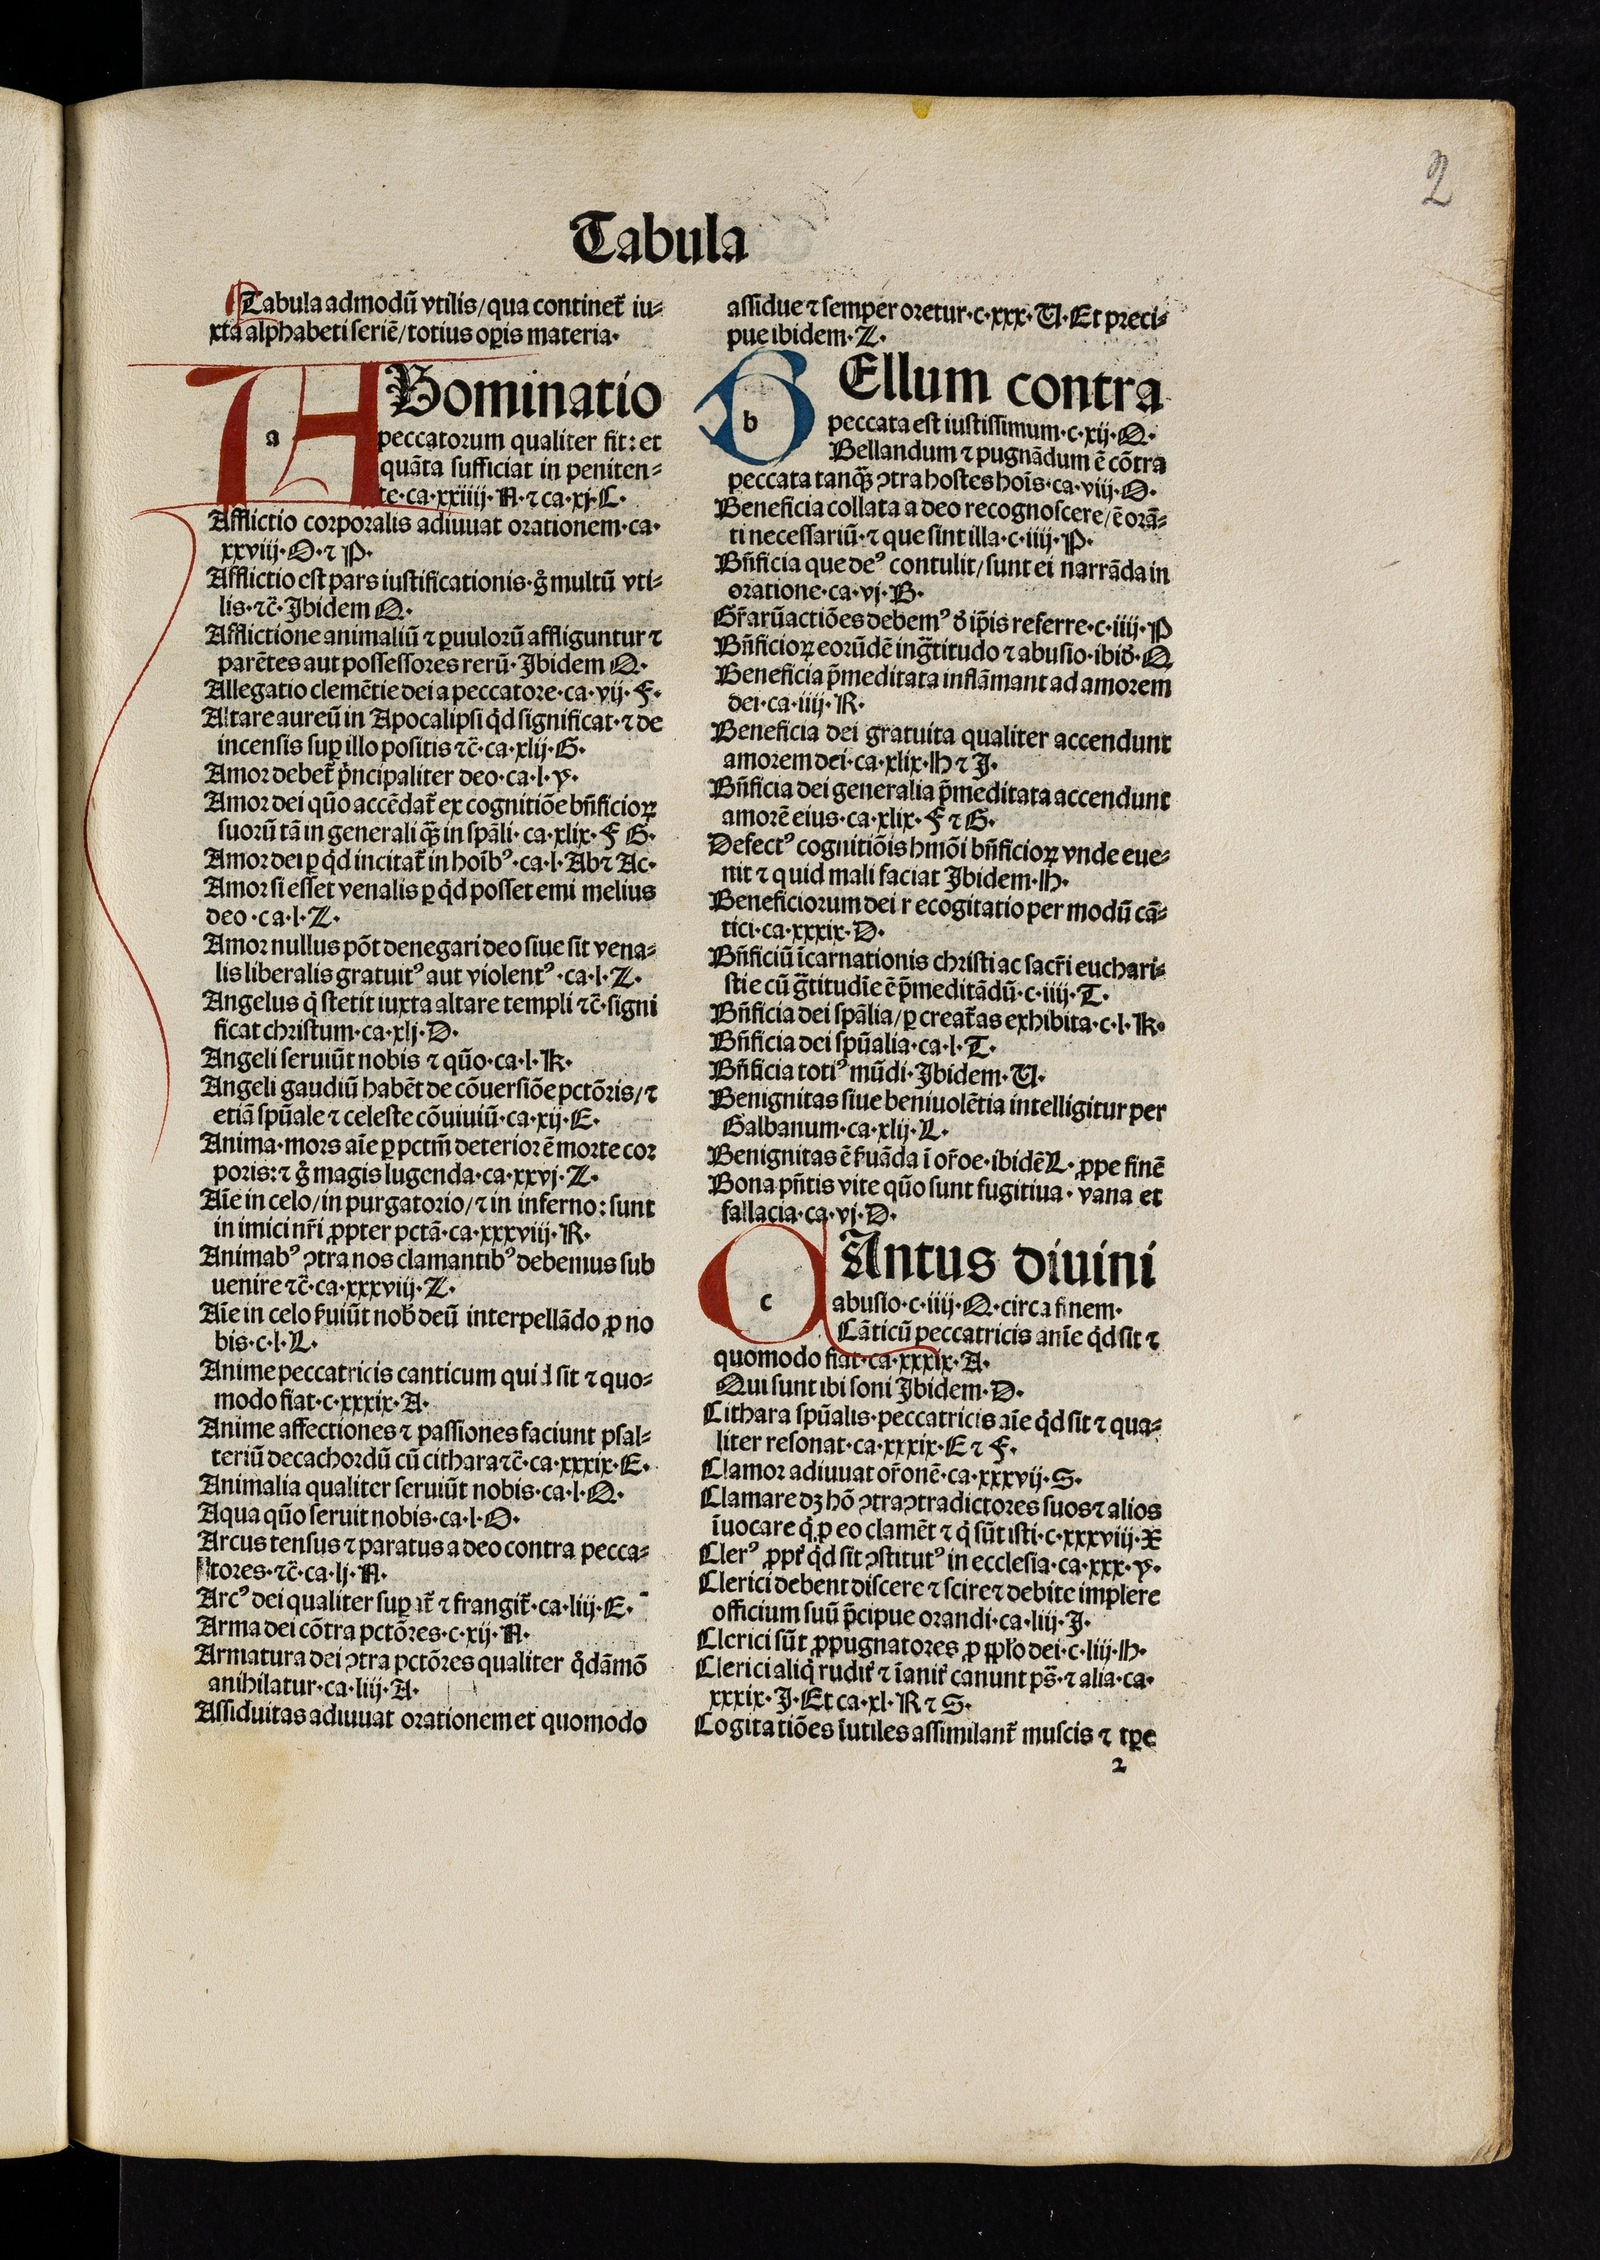 2
Tabula
Tabula admodū vtilis/qua continet̃ iu⸗
xta alphabeti seriē/totius oꝑis materia·
ABominatio
a
peccatorum qualiter fit: et
quāta sufficiat in peniten⸗
te·ca·xxiiij·N·⁊ ca·xj·C·
Afflictio corporalis adiuuat orationem·ca·
xxviij·O·⁊ P·
Afflictio est pars iustificationis·g̊ multū vti⸗
lis·⁊c̄·Ibidem Q·
Afflictione animaliū ⁊ ꝑuulorū affliguntur ⁊
parētes aut possessores rerū·Ibidem Q·
Allegatio clemētie dei a peccatore·ca·vij·F·
Altare aureū in Apocalipsi qd̛ significat·⁊ de
incensis suꝑ illo positis ⁊c̄·ca·xlij·G·
Amor debet̃ pͥncipaliter deo·ca·l·Y·
Amor dei quō accēdat̃ ex cognitiōe bn̄ficioꝝ
suorū tā in generali qꝫ̄ in spāli·ca·xlix·F G·
Amor dei ꝑ qd̛ incitat̃ in hoīb⁹·ca·l·Ab⁊ Ac·
Amor si esset venalis ꝑ qd̛ posset emi melius
deo·ca·l·Z·
Amor nullus pōt denegari deo siue sit vena⸗
lis liberalis gratuit⁹ aut violent⁹·ca·l·Z·
Angelus q̇ stetit iuxta altare templi ⁊c̄·signi
ficat christum·ca·xlj·D·
Angeli seruiūt nobis ⁊ quō·ca·l·K·
Angeli gaudiū habēt de cōuersiōe pctōris/⁊
etiā spūale ⁊ celeste cōuiuiū·ca·xij·E·
Anima·mors aīe ꝑ pctm̄ deterior ē morte cor
poris:⁊ g̊ magis lugenda·ca·xxvj·Z·
Aīe in celo/in purgatorio/⁊ in inferno: sunt
in imici nr̄i ꝓpter pctā·ca·xxxviij·R·
Animab⁹ ꝯtra nos clamantib⁹ debemus sub
uenire ⁊c̄·ca·xxxviij·Z·
Aīe in celo ẜuiūt nob̛ deū interpellādo ꝓ no
bis·c·l·L·
Anime peccatricis canticum quid sit ⁊ quo⸗
modo fiat·c·xxxix·A·
Anime affectiones ⁊ passiones faciunt psal⸗
teriū decachordū cū cithara ⁊c̄·ca·xxxix·E·
Animalia qualiter seruiūt nobis·ca·l·Q·
Aqua quō seruit nobis·ca·l·O·
Arcus tensus ⁊ paratus a deo contra pecca⸗
tores·⁊c̄·ca·lj·N·
Arc⁹ dei qualiter suꝑat̃ ⁊ frangit̃·ca·liij·E·
Arma dei cōtra pctōres·c·xij·N·
Armatura dei ꝯtra pctōres qualiter q̇dāmō
anihilatur·ca·liij·A·
Assiduitas adiuuat orationem et quomodo
assidue ⁊ semper oretur·c·xxx·U·Et preci⸗
pue ibidem·Z·
BEllum contra
b
peccata est iustissimum·c·xij·Q·
Bellandum ⁊ pugnādum ē cōtra
peccata tanqꝫ̄ ꝯtra hostes hoīs·ca·viij·O·
Beneficia collata a deo recognoscere/ē orā⸗
ti necessariū·⁊ que sint illa·c·iiij·P·
Bn̄ficia que de⁹ contulit/sunt ei narrāda in
oratione·ca·vj·B·
Gr̄arū actiōes debem⁹ d̛ ip̄is referre·c·iiij·P
Bn̄ficioꝝ eorūdē ingr̄titudo ⁊ abusio·ibid̛·Q
Beneficia p̄meditata inflāmant ad amorem
dei·ca·iiij·R·
Beneficia dei gratuita qualiter accendunt
amorem dei·ca·xlix·H ⁊ I·
Bn̄ficia dei generalia p̄meditata accendunt
amorē eius·ca·xlix·F ⁊ G·
Defect⁹ cognitiōis hmōi bn̄ficioꝝ vnde eue⸗
nit ⁊ quid mali faciat Ibidem·H·
Beneficiorum dei r ecogitatio per modū cā⸗
tici·ca·xxxix·D·
Bn̄ficiū īcarnationis christi ac sacr̄i euchari⸗
stie cū gr̄titudīe ē p̄meditādū·c·iiij·T·
Bn̄ficia dei spālia/ꝑ creat̃as exhibita·c·l·K·
Bn̄ficia dei spūalia·ca·l·T·
Bn̄ficia toti⁹ mūdi·Ibidem·U·
Benignitas siue beniuolētia intelligitur per
Galbanum·ca·xlij·L·
Benignitas ē ẜuāda ī or̄oe·ibidē L·ꝓpe finē
Bona pn̄tis vite quō sunt fugitiua·vana et
fallacia·ca·vj·D·
CAntus diuini
c
abusio·c·iiij·Q·circa finem·
Cāticū peccatricis anīe qd̛ sit ⁊
quomodo fiat·ca·xxxix·A·
Qui sunt ibi soni Ibidem·D·
Cithara spūalis·peccatricis aīe qd̛ sit ⁊ qua⸗
liter resonat·ca·xxxix·E ⁊ F·
Clamor adiuuat or̄onē·ca·xxxvij·S·
Clamare dꝫ hō ꝯtra ꝯtradictores suos ⁊ alios
īuocare q̇ ꝓ eo clamēt ⁊ q̇ sūt isti·c·xxxviij·X
Cler⁹ ꝓpt̛ qd̛ sit ꝯstitut⁹ in ecclesia·ca·xxx·Y·
Clerici debent discere ⁊ scire ⁊ debite implere
officium suū p̄cipue orandi·ca·liij·I·
Clerici sūt ꝓpugnatores ꝓ pp̄lo dei·c·liij·H·
Clerici aliq̇ rudit̛ ⁊ īanit̛ canunt ps̄·⁊ alia·ca·
xxxix·I·Et ca·xl·R ⁊ S·
Cogitatiōes īutiles assimilant̃ muscis ⁊ tꝑe
2